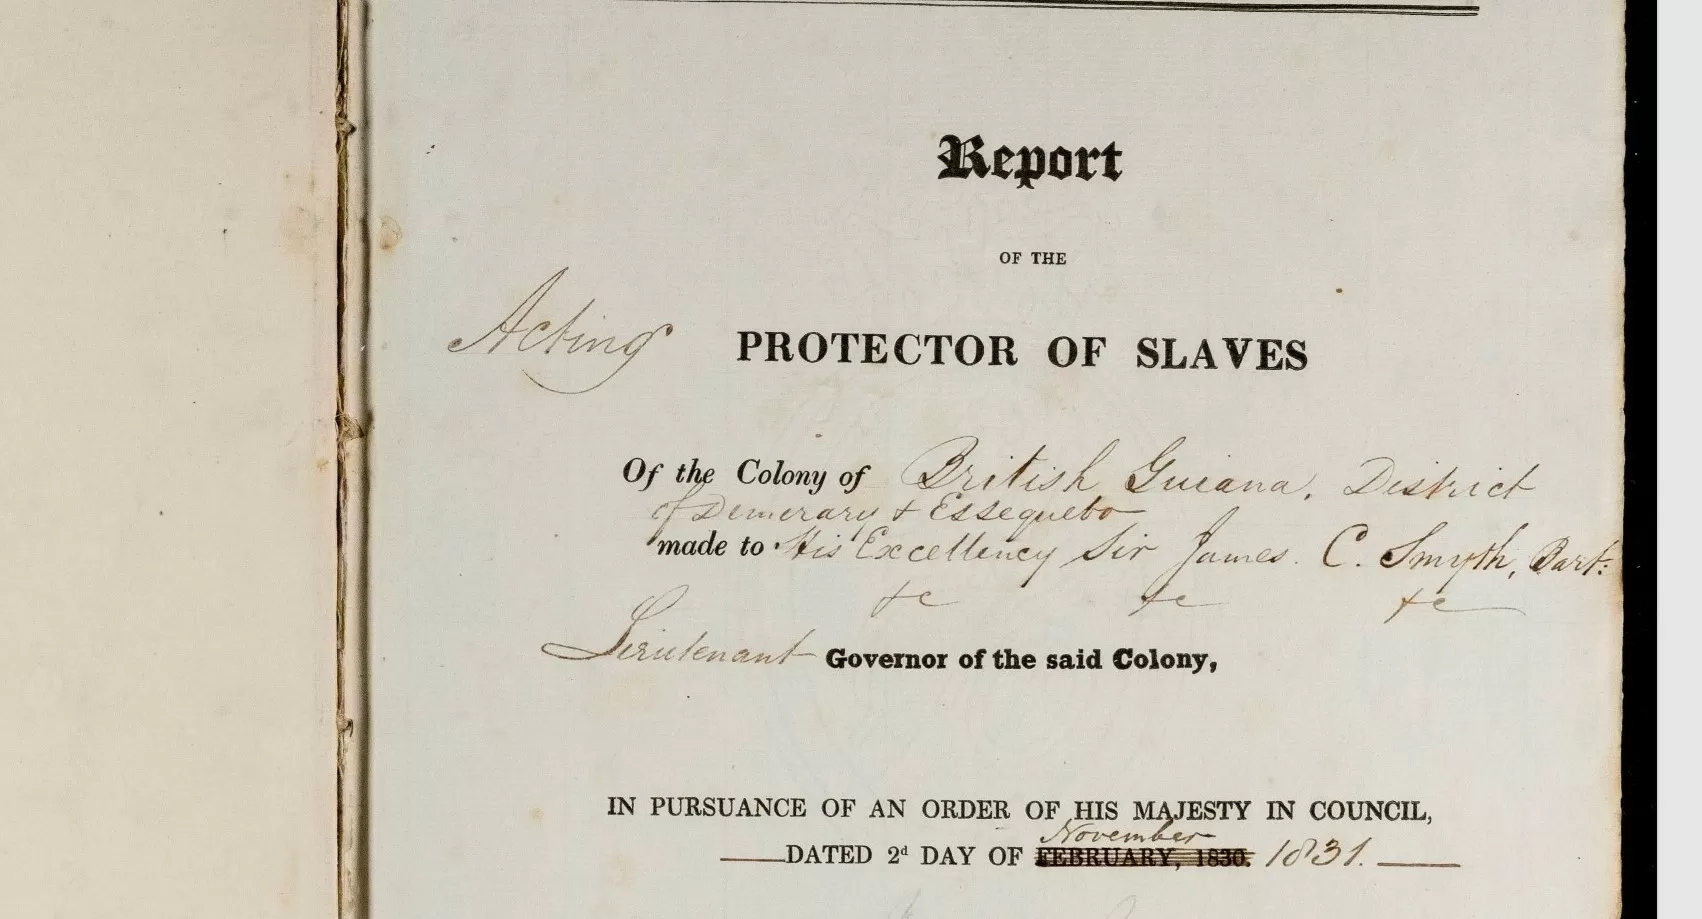 Report
OF THE
Acting PROTECTOR OF SLAVES
Of the Colony of British Guiana, District
of Demerary & Essequebo
made to His Excellency Sir James. C. Smyth, Bart:
&c &c &c
Lieutenant Governor of the said Colony,
IN PURSUANCE OF AN ORDER OF HIS MAJESTY IN COUNCIL,
November
DATED 2d DAY OF FEBRUARY, 1830. 1831.